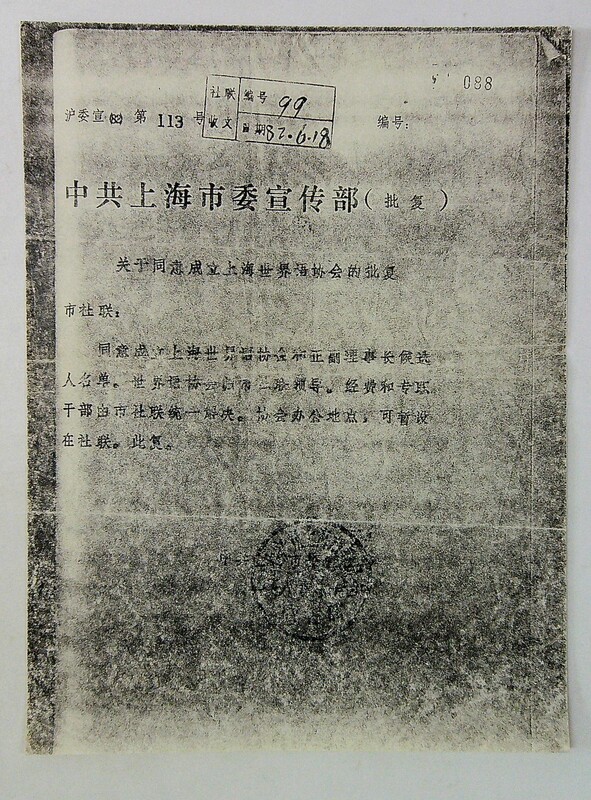 088
社联 编号 99
收文 日期 82.6.18
沪委宣(82)第 113 号
编号:
中共上海市委宣传部(批复)
关于同意成立上海世界语协会的批复
市社联:
同意成立上海世界语协会和正副理事长候选
人名单。世界语协会归市社联领导。经费和专职
干部由市社联统一解决。协会办公地点,可暂设
在社联。此复。